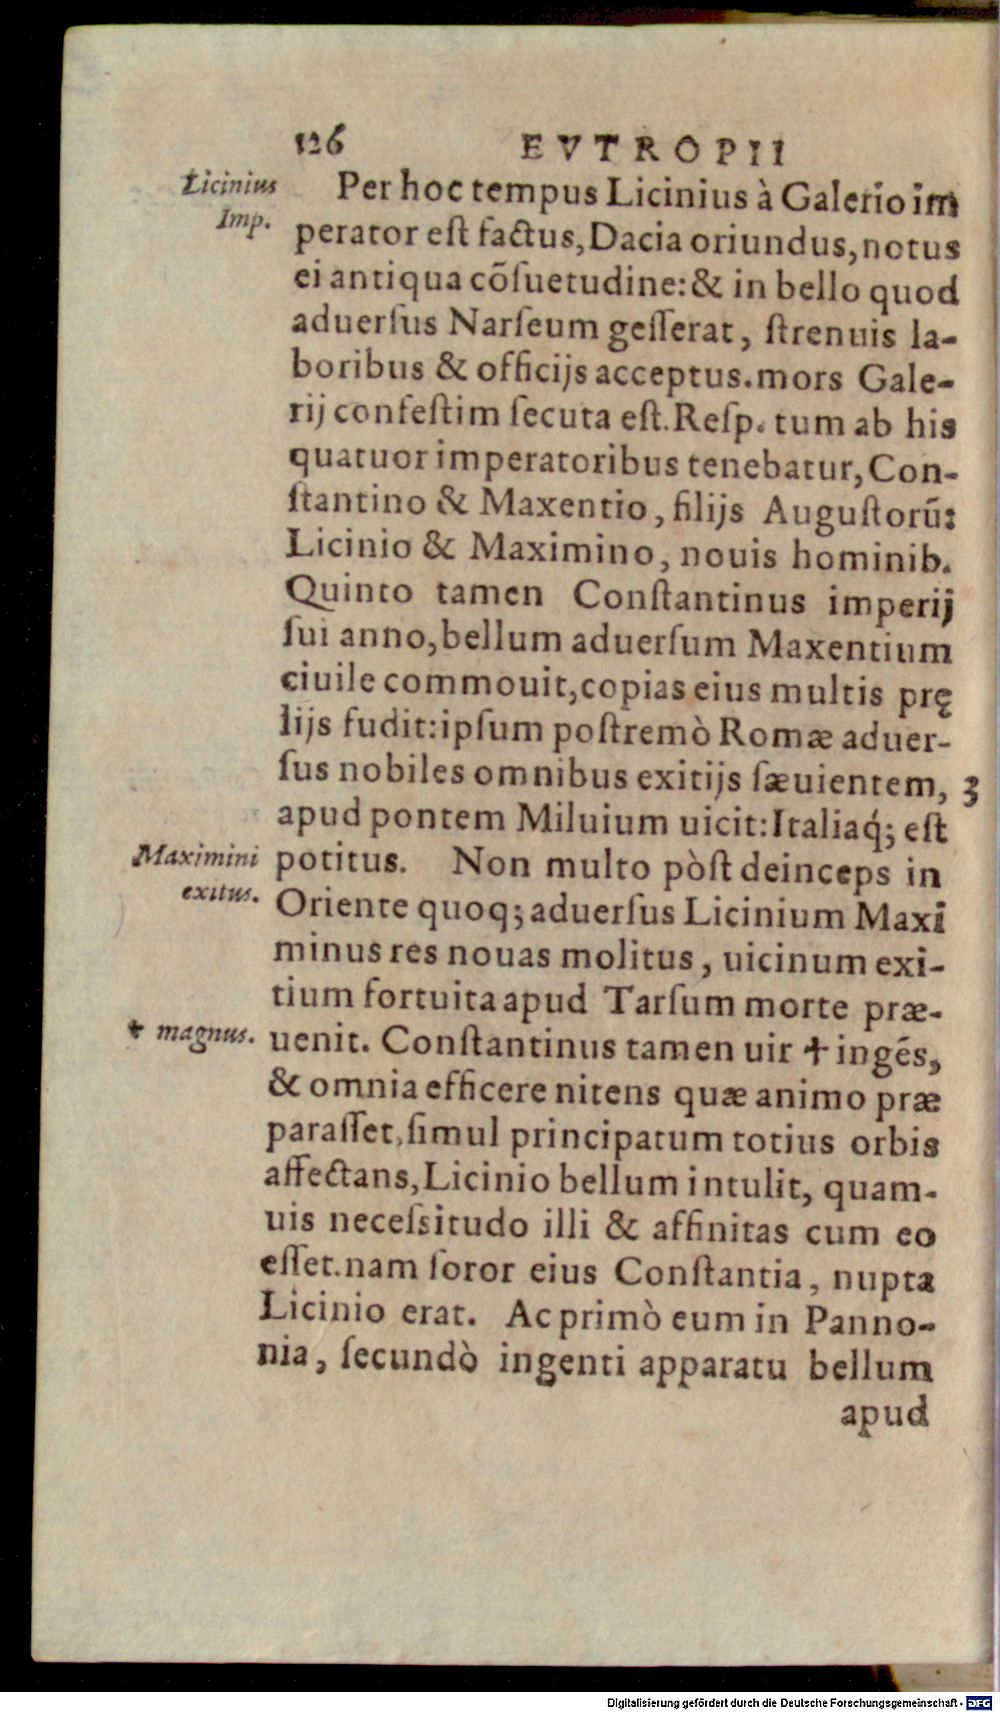 126 EVTROPII
Licinius
Imp.
Per hoc tempus Licinius à Galerio im
perator eſt factus, Dacia oriundus, notus
ei antiqua cõſuetudine: & in bello quod
aduerſus Narſeum geſſerat, ſtrenuis la-
boribus & officijs acceptus. mors Gale-
rij confeſtim ſecuta eſt. Reſp. tum ab his
quatuor imperatoribus tenebatur, Con-
ſtantino & Maxentio, filijs Auguſtorũ:
Licinio & Maximino, nouis hominib.
Quinto tamen Conſtantinus imperij
ſui anno, bellum aduerſum Maxentium
ciuile commouit, copias eius multis prę
lijs fudit: ipſum poſtremò Romæ aduer-
ſus nobiles omnibus exitijs ſæuientem, 3
apud pontem Miluium uicit: Italiaq́; eſt
Maximini
exitus.
potitus. Non multo pòſt deinceps in
Oriente quoq; aduerſus Licinium Maxi
minus res nouas molitus, uicinum exi-
tium fortuita apud Tarſum morte præ-
✝ magnus.
uenit. Conſtantinus tamen uir ✝ ingẽs,
& omnia efficere nitens quæ animo præ
paraſſet, ſimul principatum totius orbis
affectans, Licinio bellum intulit, quam-
uis neceſsitudo illi & affinitas cum eo
eſſet. nam ſoror eius Conſtantia, nupta
Licinio erat. Ac primò eum in Panno-
nia, ſecundò ingenti apparatu bellum
apud
Digitalisierung gefördert durch die Deutsche Forschungsgemeinschaft - DFG